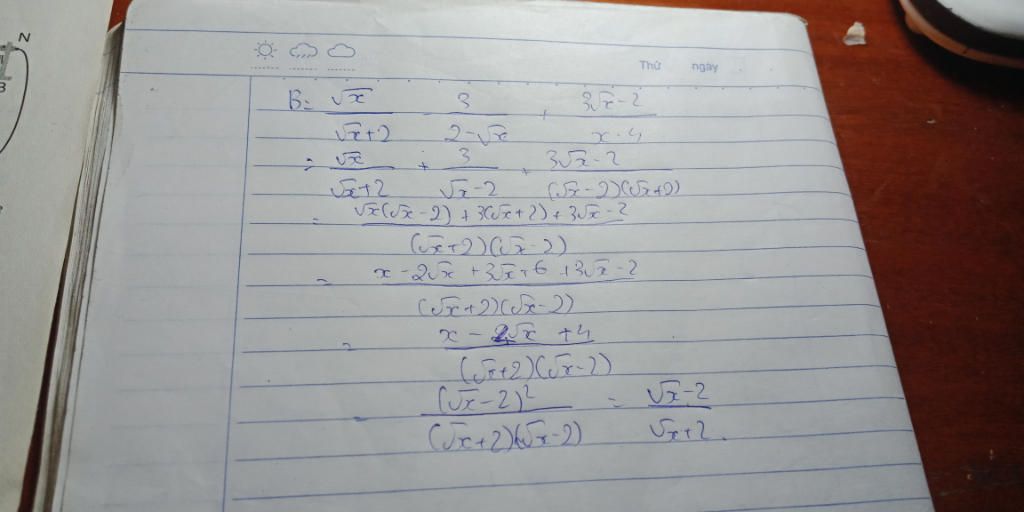 N
B
Thứ ngày
B = √x/(√x+2) - 3/(2-√x) + (3√x-2)/(x-4)
= √x/(√x+2) + 3/(√x-2) + (3√x-2)/((√x-2)(√x+2))
= (√x(√x-2) + 3(√x+2) + 3√x-2)/((√x+2)(√x-2))
= (x-2√x+3√x+6+3√x-2)/((√x+2)(√x-2))
= (x-4√x+4)/((√x+2)(√x-2))
= (√x-2)²/((√x+2)(√x-2)) = (√x-2)/(√x+2).